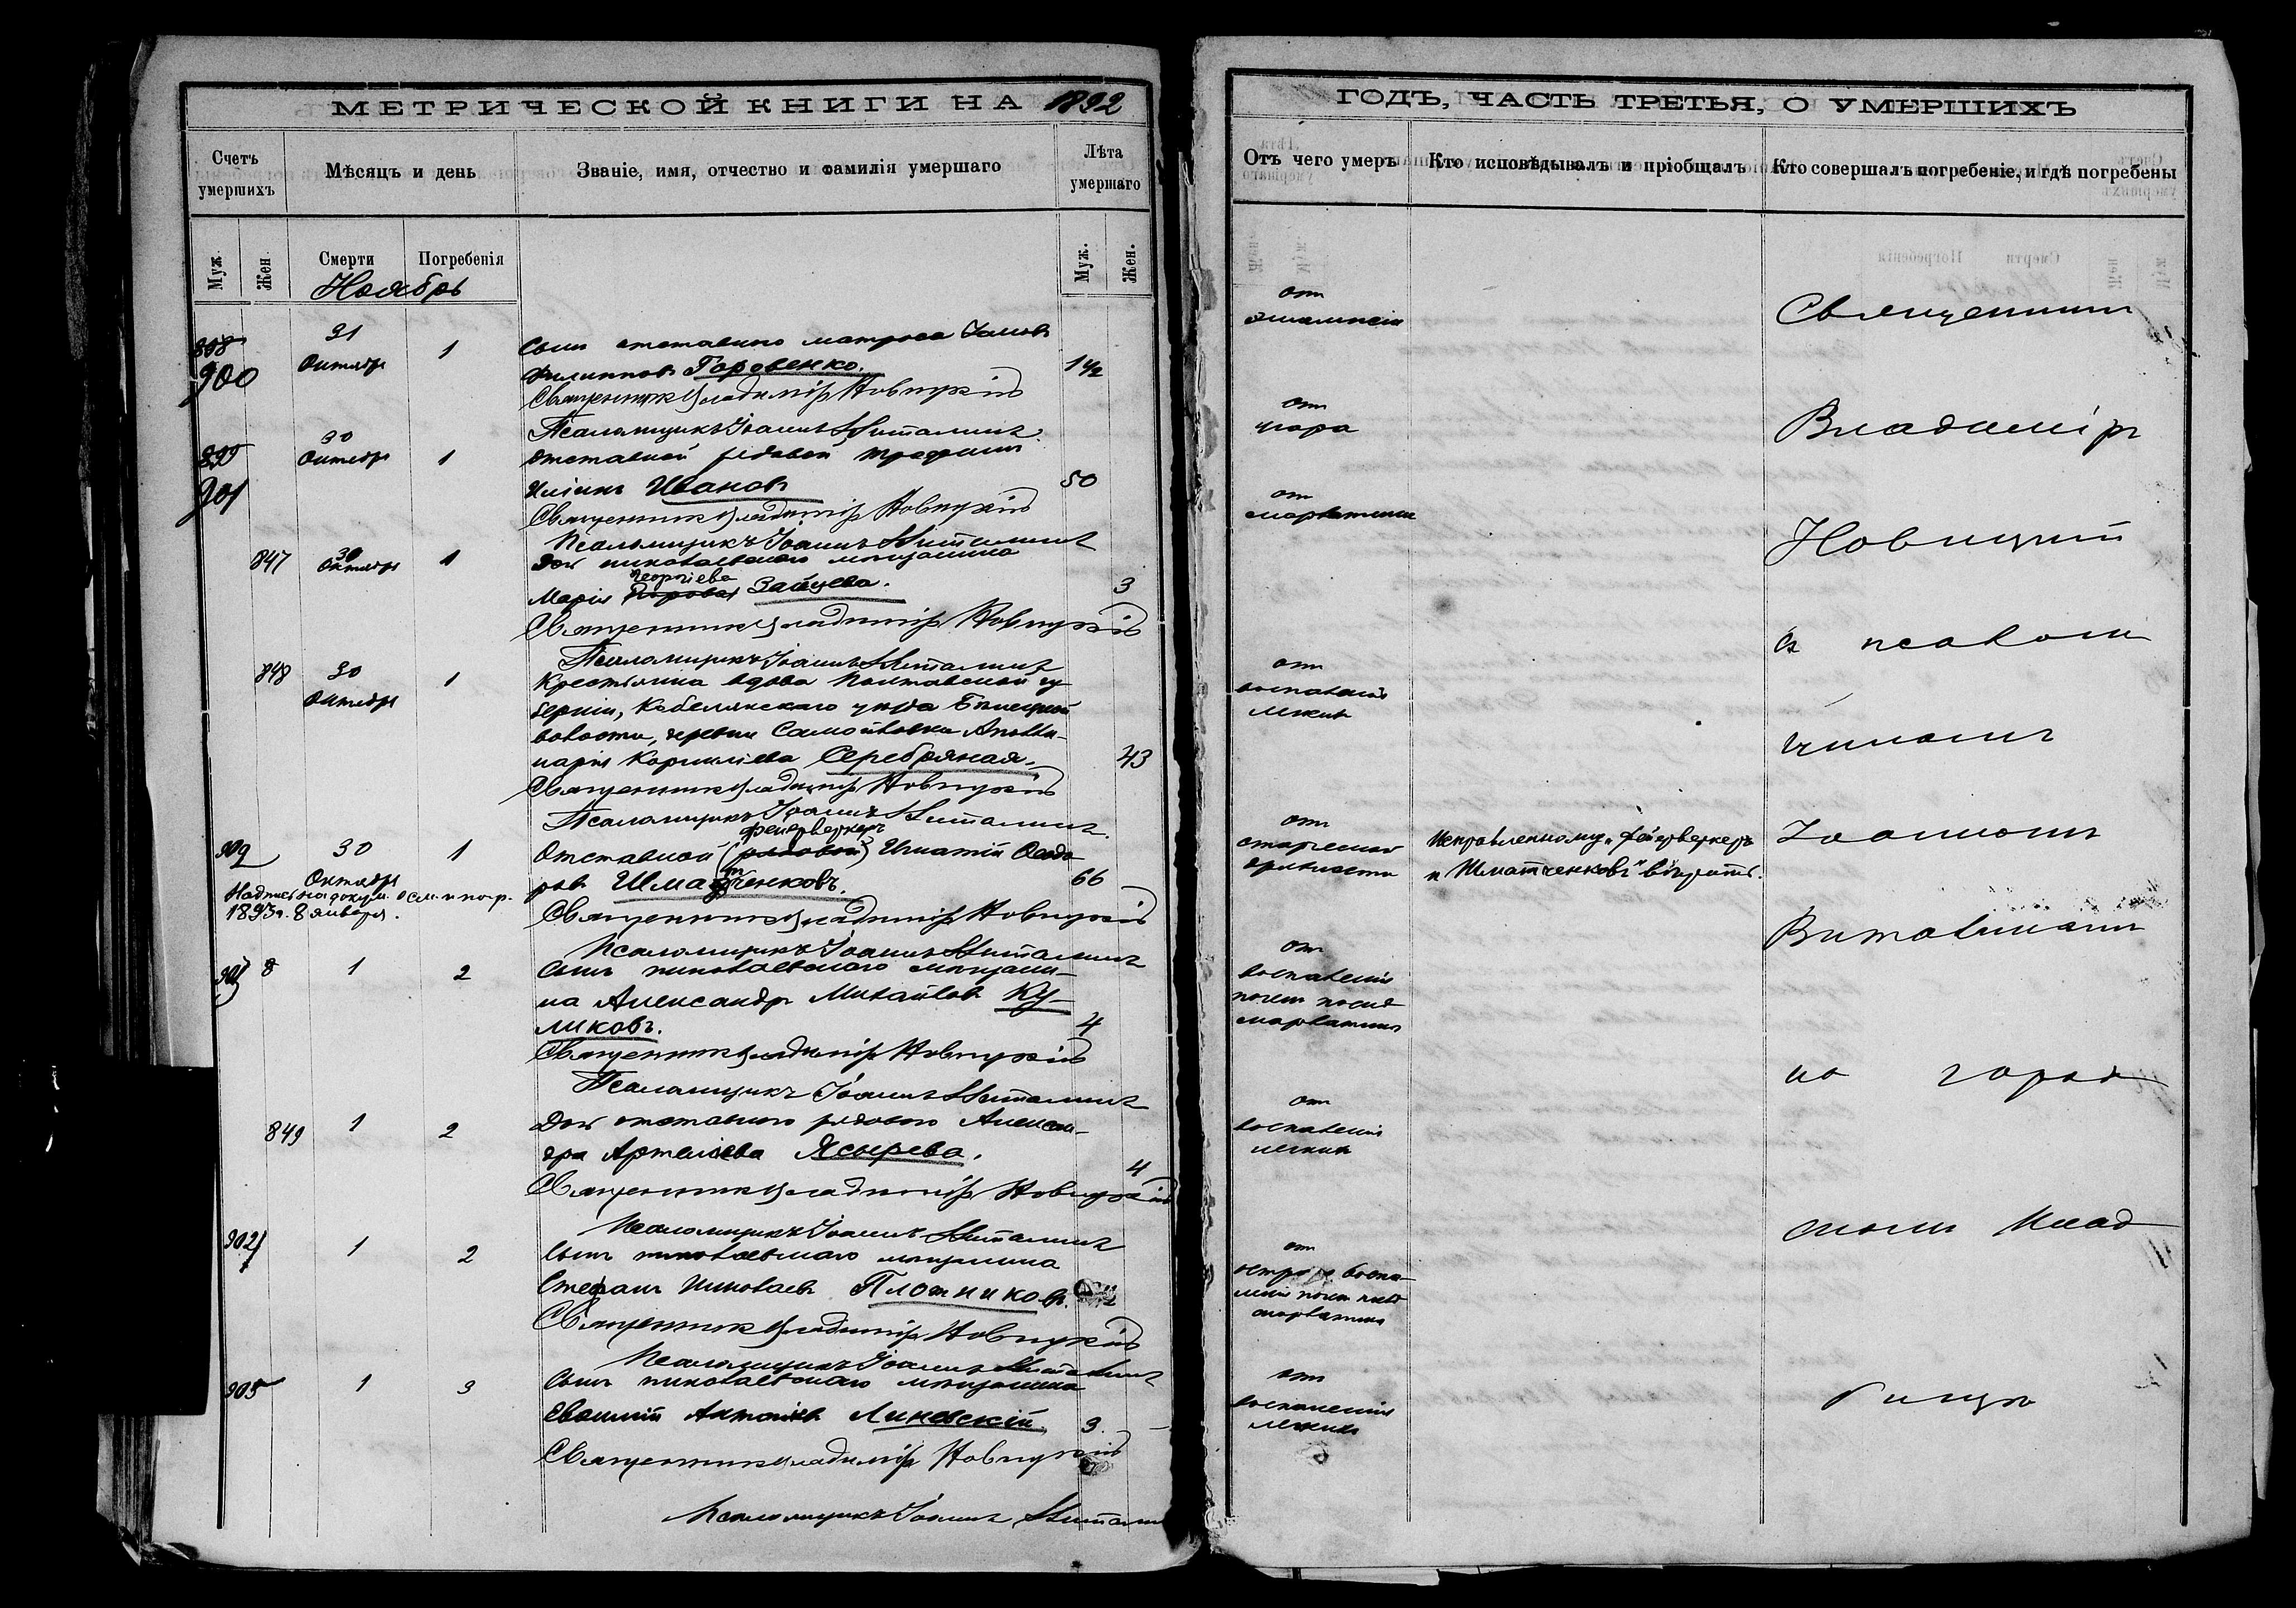 МЕТРИЧЕСКОЙ КНИГИ НА 1892
Счетъ умершихъ
Мѣсяцъ и день
Званіе, имя, отчество и фамилія умершаго
Лѣта умершаго
Муж.
Жен.
Смерти
Погребенія
Муж.
Жен.
Ноябрь
898
900
31
Октября
1
Сынъ отставного матроса Іаковъ
Филипповъ Горовенко.
1 1/2
Священникъ Владиміръ Новицкій
Псаломщикъ Іоаннъ
899
901
30
Октября
1
Отставной рядовой Трофимъ
Иванов
50
Священникъ Владиміръ Новицкій
Псаломщикъ Іоаннъ
847
30
Октября
1
Дочь николаевскаго мѣщанина
Георгіева
Марія Зайцева.
3
Священникъ Владиміръ Новицкій
Псаломщикъ Іоаннъ
848
30
Октября
1
Крестьянка вдова Полтавской гу-
берніи, Кобелякскаго уѣзда
волости, деревни Самойловки Аполли-
нарія Корниліева Серебряная.
43
Священникъ Владиміръ Новицкій
Псаломщикъ Іоаннъ
фейерверкеръ
902
30
Октября
1
Отставной (рядовой) Игнатій Ѳеодо
ровъ Шматченковъ.
66
Надпись на докум. о см. и погр.
1893 г. 8 января.
Священникъ Владиміръ Новицкій
Псаломщикъ Іоаннъ
903
1
2
Сынъ николаевскаго мѣщани-
на Александръ Михайловъ Ку-
ликовъ.
4
Священникъ Владиміръ Новицкій
Псаломщикъ Іоаннъ
849
1
2
Дочь отставного рядового Алексан-
дра Артемьева Ясырева.
4
Священникъ Владиміръ Новицкій
Псаломщикъ Іоаннъ
1
2
Сынъ николаевскаго мѣщанина
Стефанъ Николаевъ Плотниковъ.
Священникъ Владиміръ Новицкій
Псаломщикъ Іоаннъ
905
1
3
Сынъ николаевскаго мѣщанина
Евѳимій Антоніевъ Линевскій.
3
Священникъ Владиміръ Новицкій
Псаломщикъ Іоаннъ
ГОДЪ, ЧАСТЬ ТРЕТЬЯ, О УМЕРШИХЪ
Отъ чего умеръ
Кто исповѣдывалъ и пріобщалъ
Кто совершалъ погребеніе, и гдѣ погребены
отъ
эклампсіи
отъ
угара
отъ
скарлатины
отъ
воспаленія
легкихъ
отъ
старческой
дряхлости
Исправленному „фейерверкеръ
и Шматченковъ" вѣрить.
отъ
воспаленія
почекъ послѣ
скарлатины
отъ
воспаленія
легкихъ
отъ
остраго воспа-
ленія почекъ послѣ
скарлатины
отъ
воспаленія
легкихъ
Священникъ
Владиміръ
Новицкій
съ псалом
щикомъ
Іоанномъ
на город
скомъ клад
бищѣ